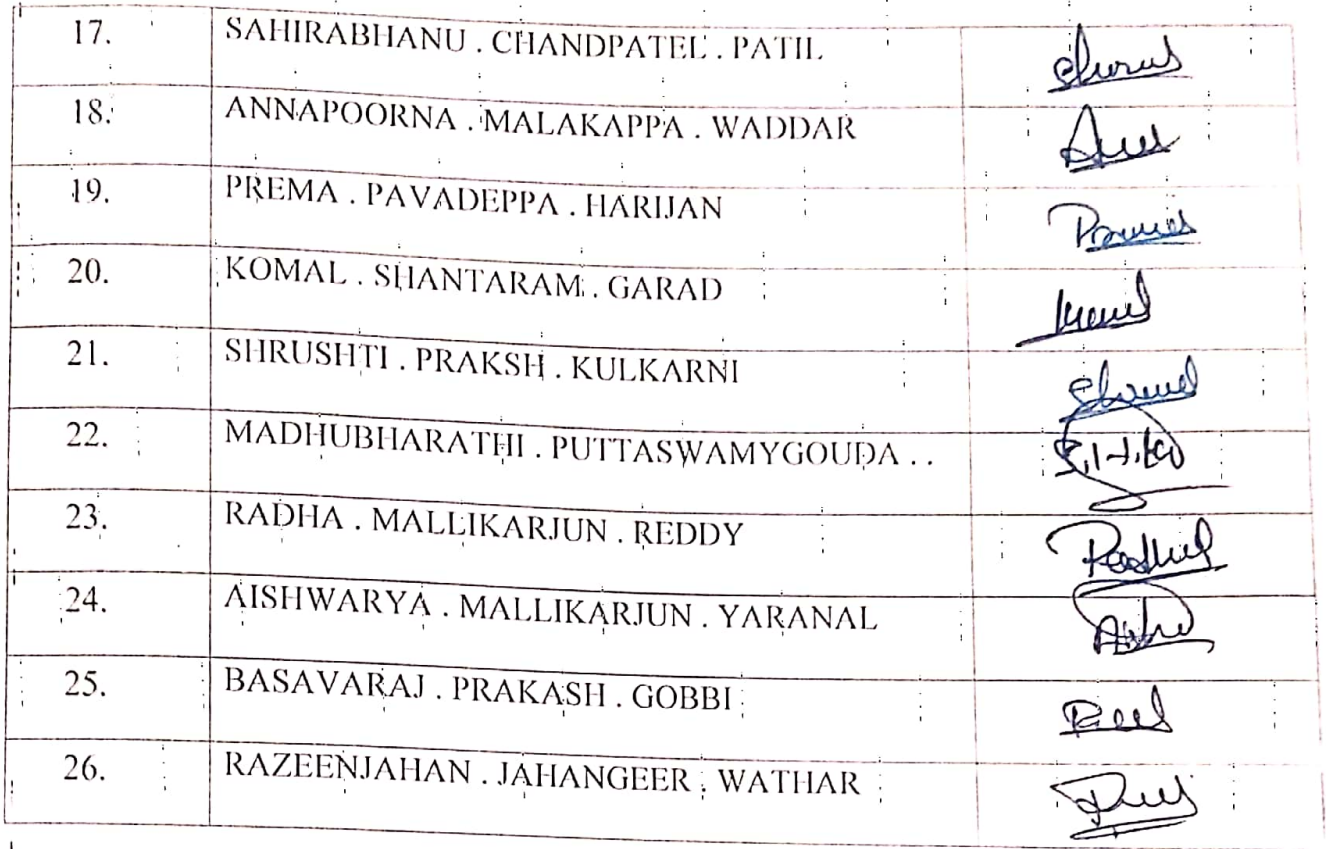 17. SAHIRABHANU . CHANDPATEL . PATIL
18. ANNAPOORNA . MALAKAPPA . WADDAR
19. PREMA . PAVADEPPA . HARIJAN
20. KOMAL . SHANTARAM . GARAD
21. SHRUSHTI . PRAKSH . KULKARNI
22. MADHUBHARATHI . PUTTASWAMYGOUDA . .
23. RADHA . MALLIKARJUN . REDDY
24. AISHWARYA . MALLIKARJUN . YARANAL
25. BASAVARAJ . PRAKASH . GOBBI
26. RAZEENJAHAN . JAHANGEER . WATHAR